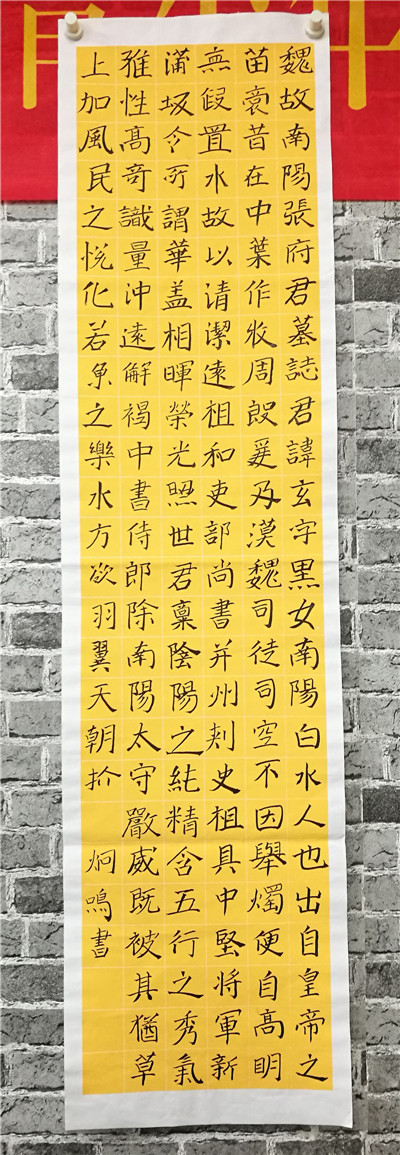 魏故南陽張府君墓誌君諱玄字黑女南陽白水人也出自皇帝之
苗裔昔在中葉作牧周殷爰及漢魏司徒司空不因舉燭便自高明
無假置水故以清潔遠祖和吏部尚書并州刾史祖具中堅將軍新
蒲坂令所謂華盖相暉榮光照世君稟陰陽之純精含五行之秀氣
雅性高奇識量沖遠解褐中書侍郎除南陽太守嚴威既被其猶草
上加風民之悅化若魚之樂水方欲羽翼天朝抓
炯鳴書